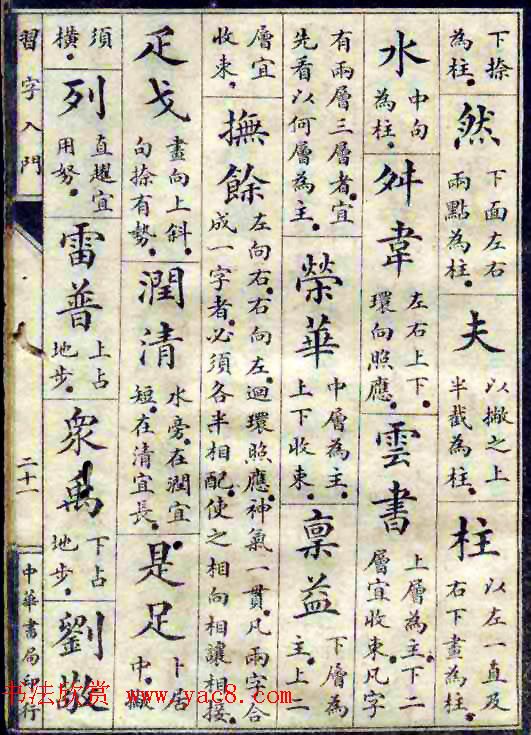 下捺
為柱。
然
下面左右
兩點為柱。
夫
以撇之上
半截為柱。
柱
以左一直及
右下畫為柱。
水
中句
為柱。
舛韋
左右上下。
環向照應。
雲書
上層為主。下二
層宜收束。凡字
有兩層三層者。宜
先看以何層為主。
榮華
中層為主。
上下收束。
稟益
下層為
主。上二
層宜
收束。
撫餘
左向右。右向左。迴環照應。神氣一貫。凡兩字合
成一字者。必須各半相配。使之相向相讓相接。
疋戈
畫向上斜。
句捺有勢。
潤清
水旁。在潤宜
短。在清宜長。
是足
卜居
中。撇
須
橫。
列
直趯宜
用努。
雷普
上占
地步。
眾禹
下占
地步。
劉敬
習字入門
二十一
中華書局印行
书法欣赏 www.yac8.com